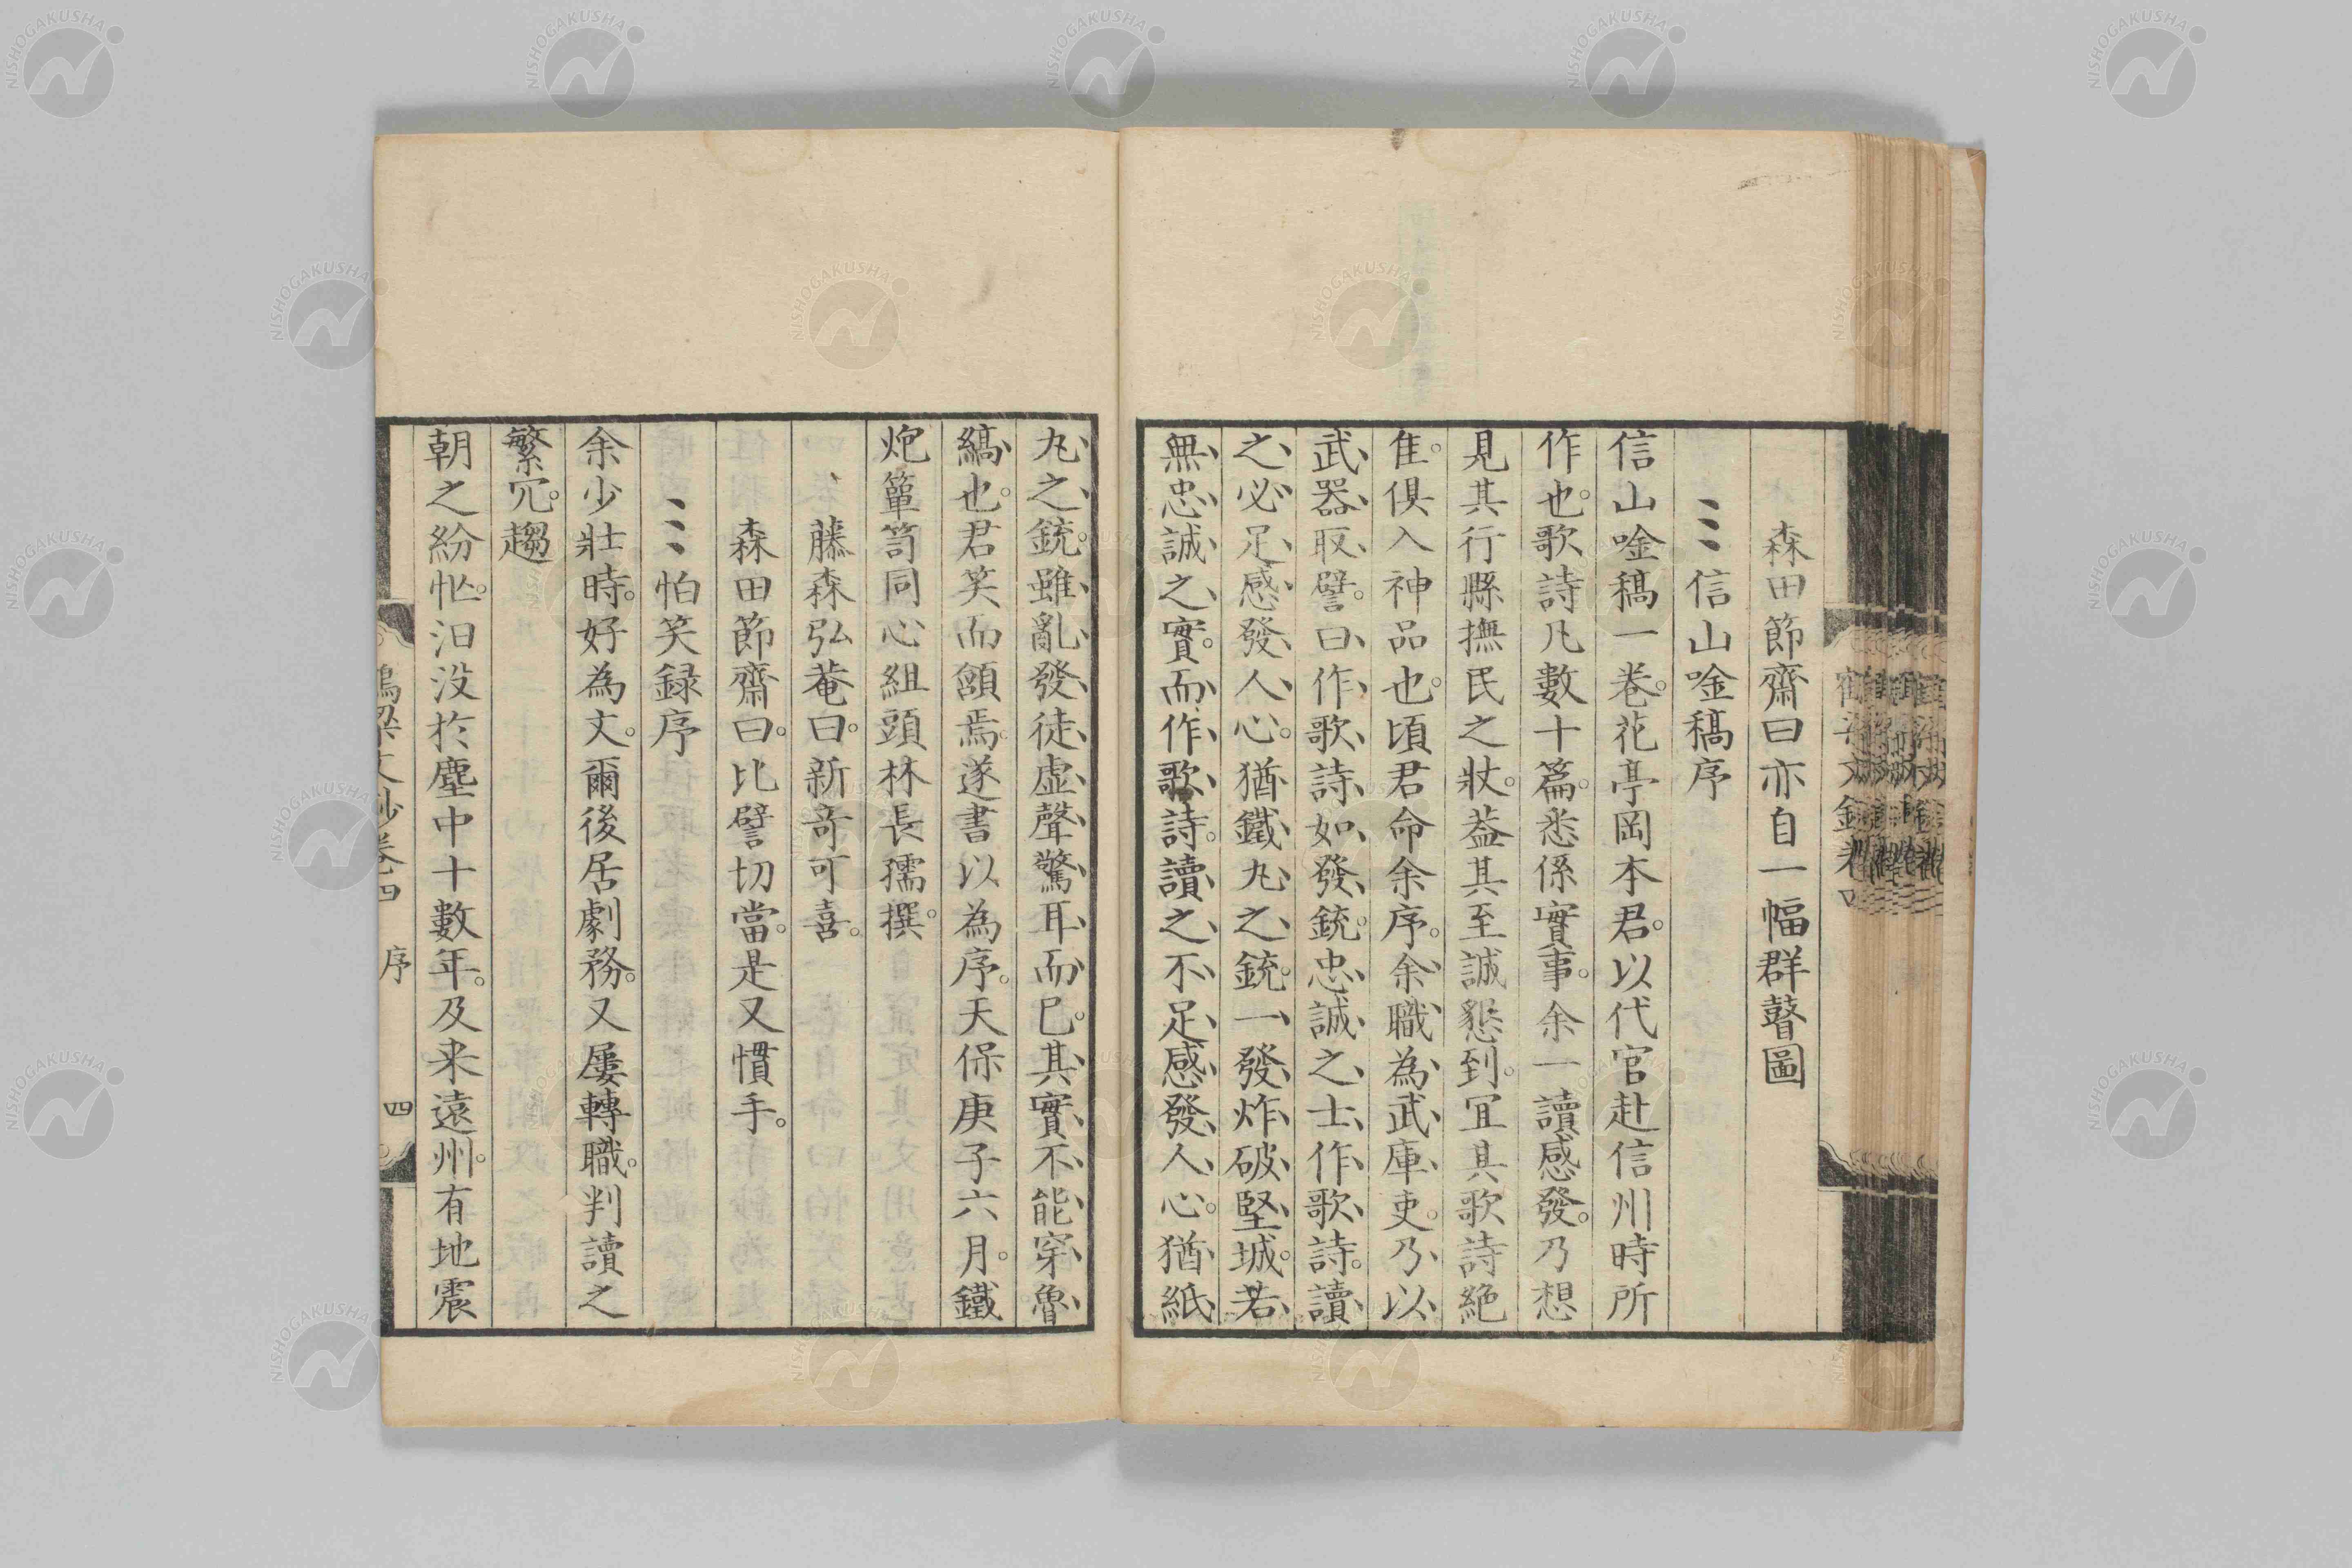 森田節齋曰亦自一幅群瞽圖
信山唫稿序
信山唫稿一卷。花亭岡本君。以代官赴信州時所
作也。歌詩凡數十篇。悉係實事。余一讀感發。乃想
見其行縣撫民之狀。葢其至誠懇到。冝其歌詩絶
隹。俱入神品也。頃君命余序。余職為武庫吏。乃以
武器取譬。曰作歌詩如發銃。忠誠之士作歌詩。讀
之必足感發人心。猶鐵丸之銃。一發炸破堅城。若
無忠誠之實。而作歌詩。讀之不足感發人心。猶紙
丸之銃。雖亂發徒虛聲驚耳而已。其實不能穿魯
縞也。君笑而頷焉。遂書以為序。天保庚子六月。鐵
炮簞笥同心組頭林長孺撰。
藤森弘菴曰。新竒可喜。
森田節齋曰。比譬切當。是又慣手。
怕笑録序
余少壯時。好為文。爾後居劇務。又屢轉職。判讀之
繁冗。趨
朝之紛忙。汨没於塵中十數年。及来遠州。有地震
鶴梁文鈔卷四 序 四
NISHOGAKUSHA